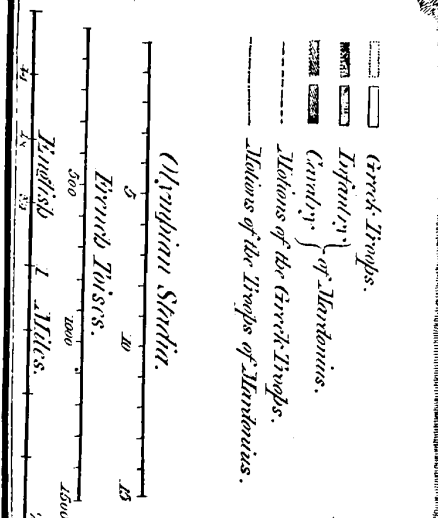 Greek Troops.
Infantry
Cavalry
of Mardonius.
Motions of the Greek Troops.
Motions of the Troops of Mardonius.
Olympian Stadia.
5 10 15
French Toises.
500 1000 1500
English Miles.
1